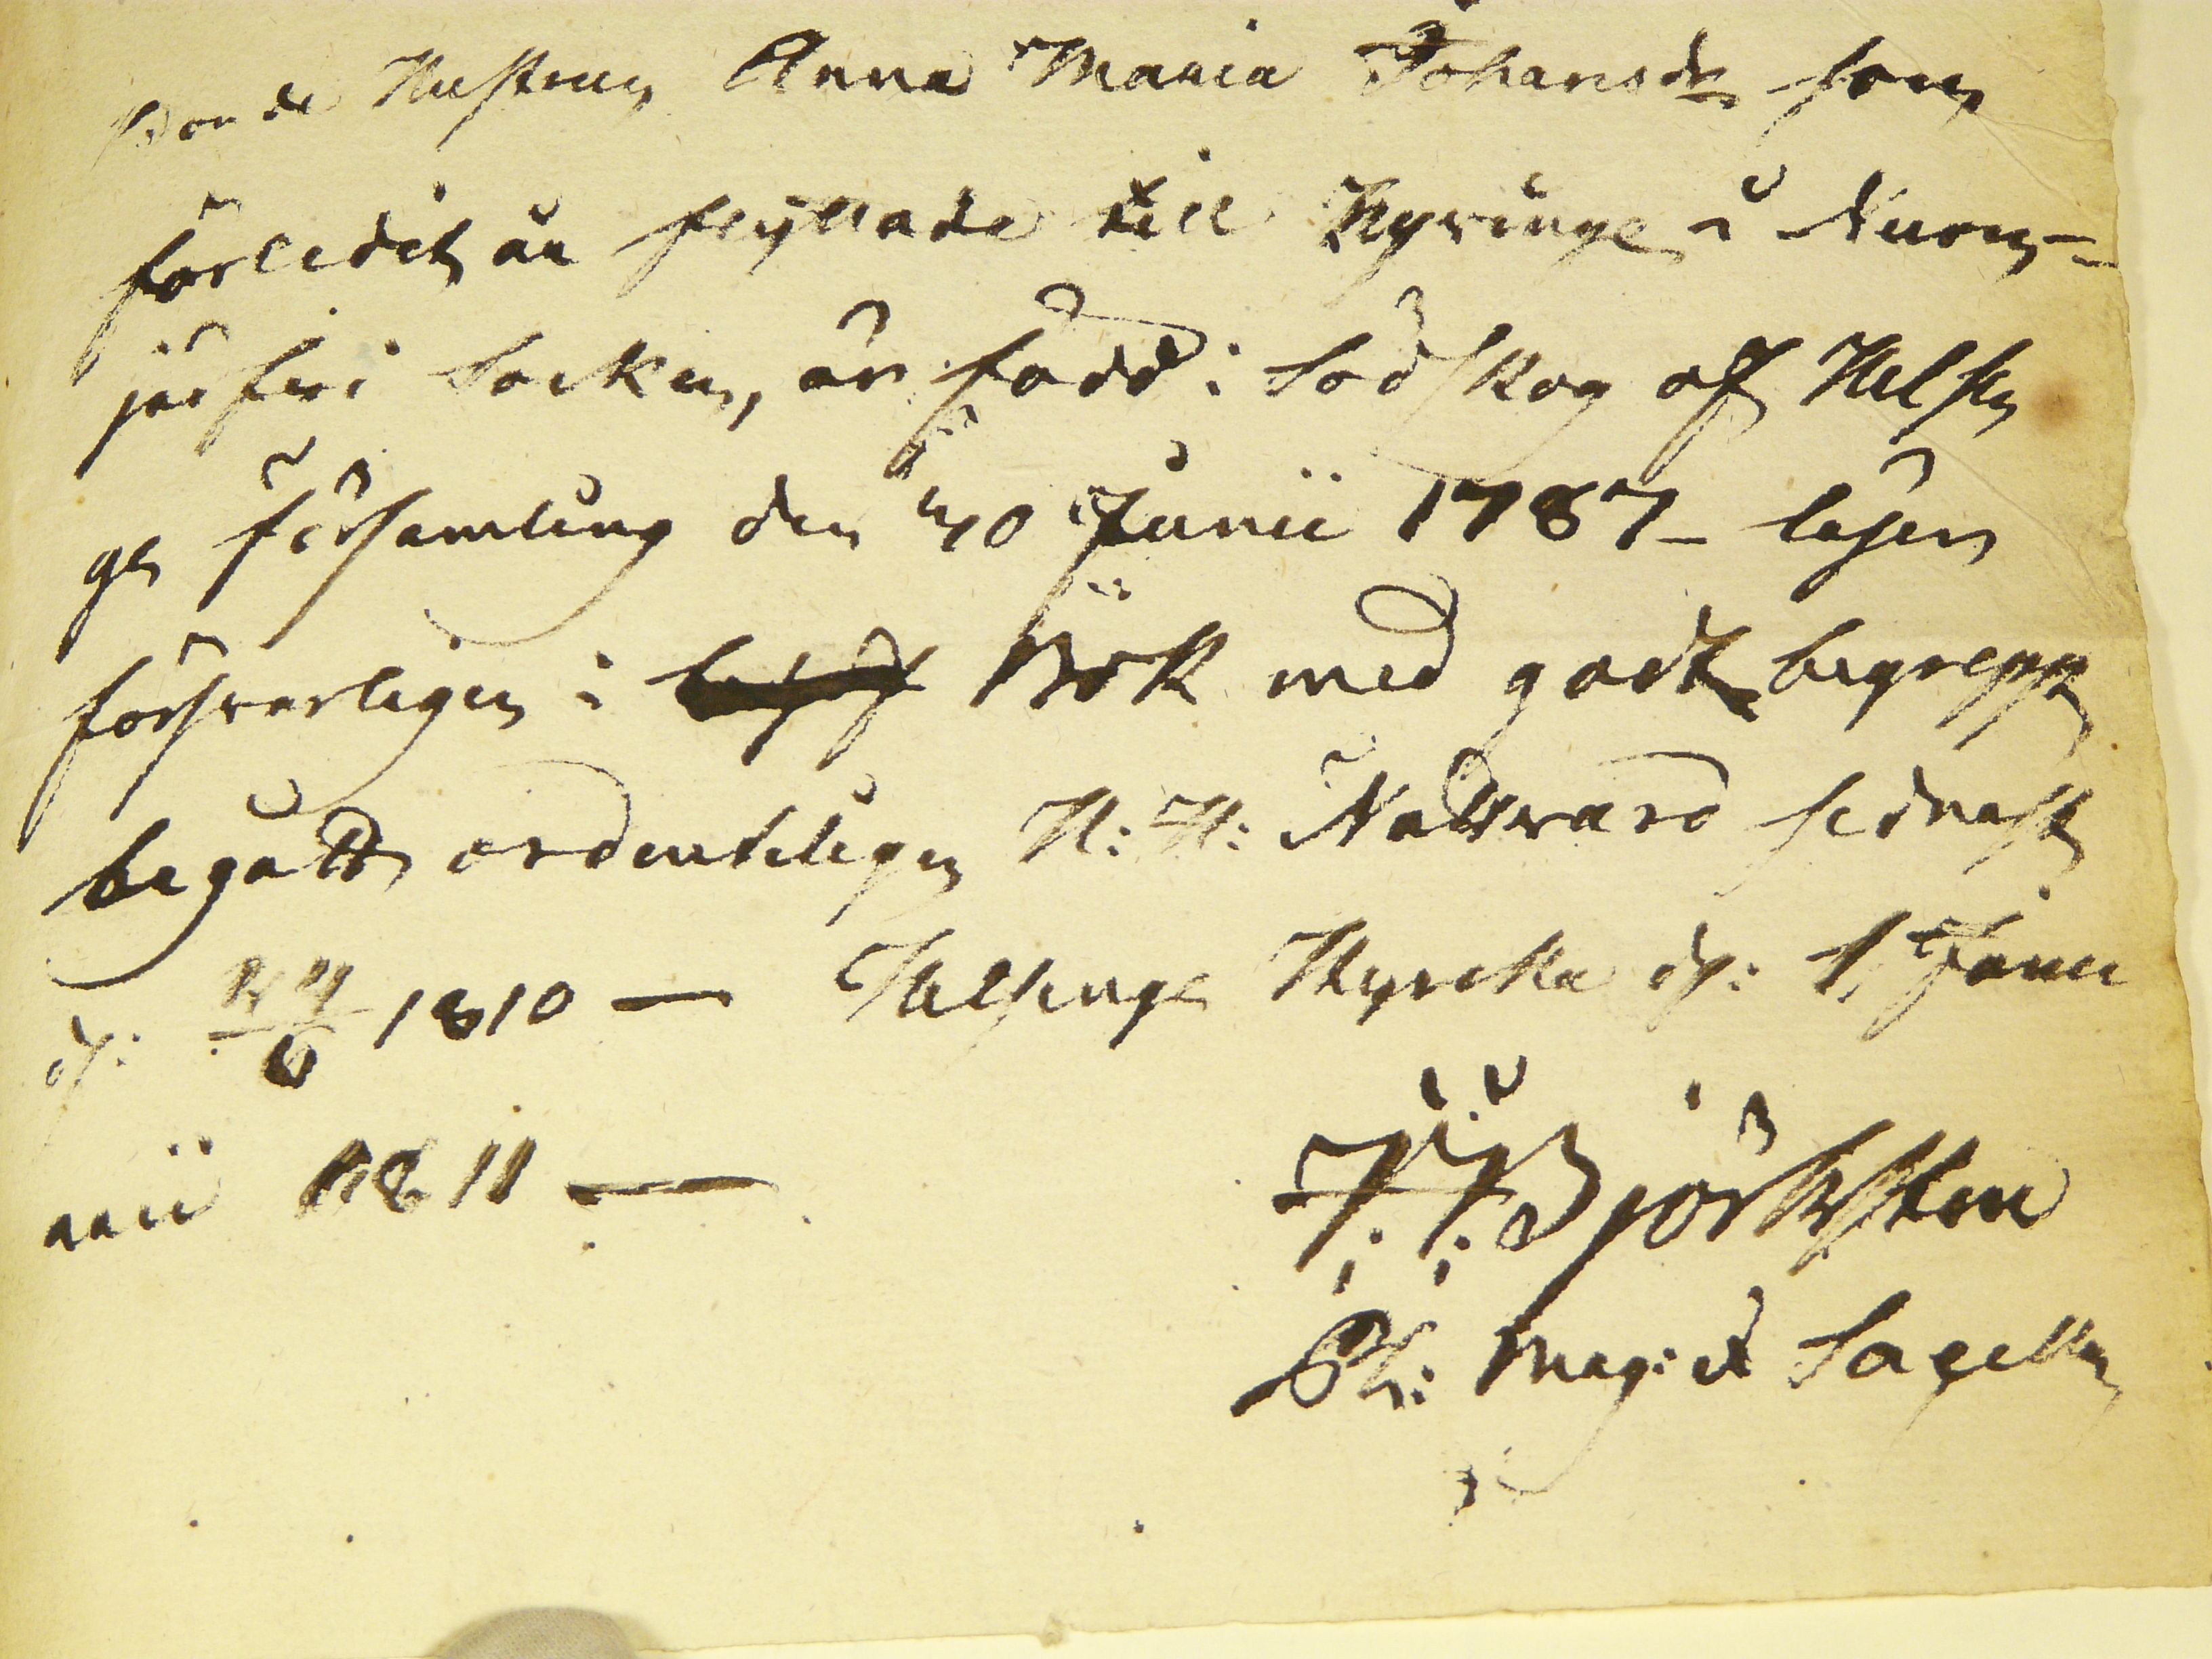 Bonde Hustrun Anna Maria Johansdr som
förledit år flyttade till Hyvinge i Nurm-
järfvi Socken, är född i Sodskog af Helsin
ge församling den 10 Junii 1787 – läser
försvarligen i Bok med godt begrepp
begått ordenteligen H: H: Nattvard sednast
d: 24/6 1810 — Helsinge Kyrcka d: 1. Janu
arii 1811 —
J. J. Björksten
Ph: Mag: et Sacell